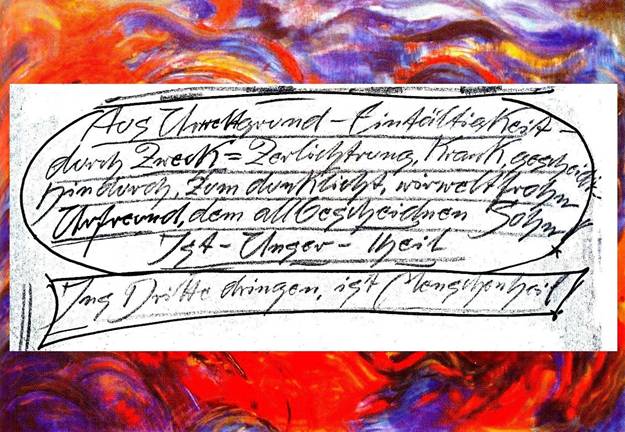 Aus Urweltgrund-Einfältigkeit-
durch Zweck=Zerlichtrung, Krank, gescheidt-
hindurch, zum dunklicht, wirweltfrohn
Urfreund, dem allGescheidnen Sohn
Ist-Unser-theil
Ins Dritte dringen, ist Menschenheil!